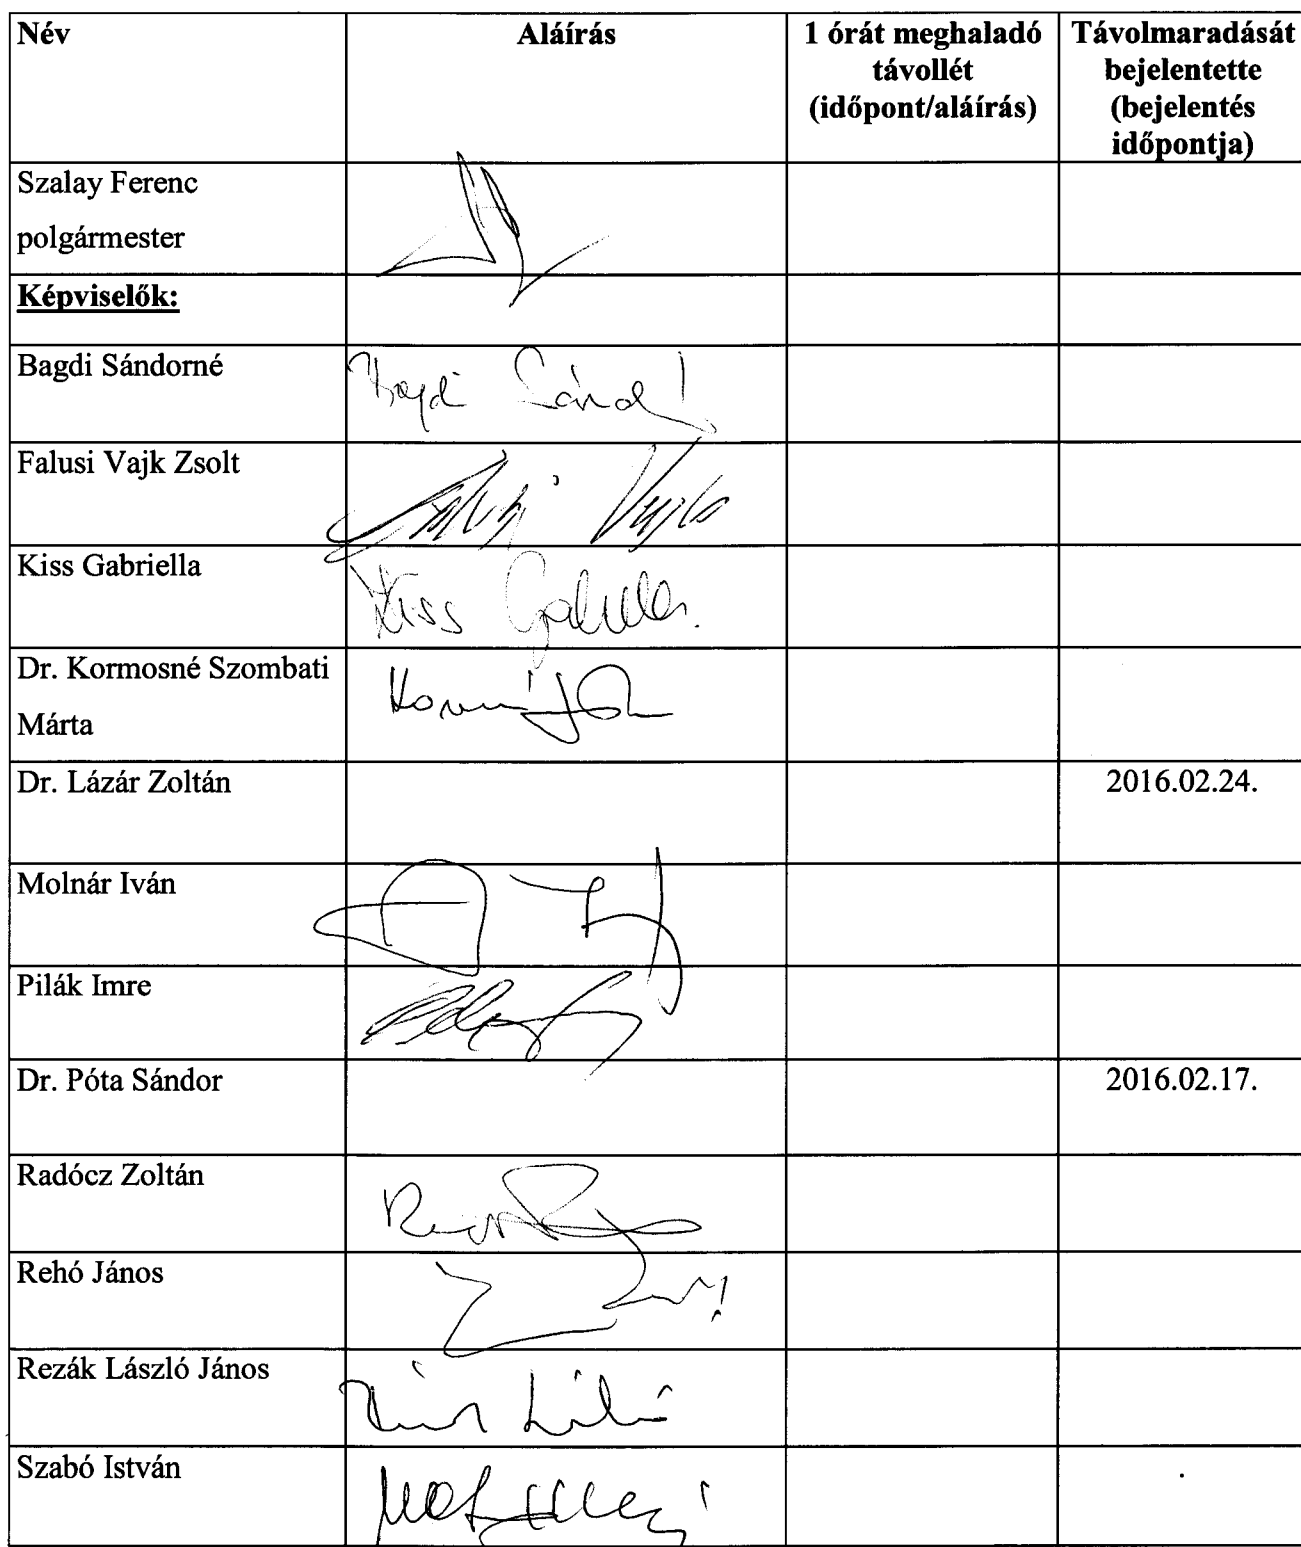 Név
Aláírás
1 órát meghaladó
távollét
(időpont/aláírás)
Távolmaradását
bejelentette
(bejelentés
időpontja)
Szalay Ferenc
polgármester
Képviselők:
Bagdi Sándorné
Falusi Vajk Zsolt
Kiss Gabriella
Kiss Gabriella
Dr. Kormosné Szombati
Márta
Dr. Lázár Zoltán
2016.02.24.
Molnár Iván
Pilák Imre
Dr. Póta Sándor
2016.02.17.
Radócz Zoltán
Rehó János
Rezák László János
Szabó István